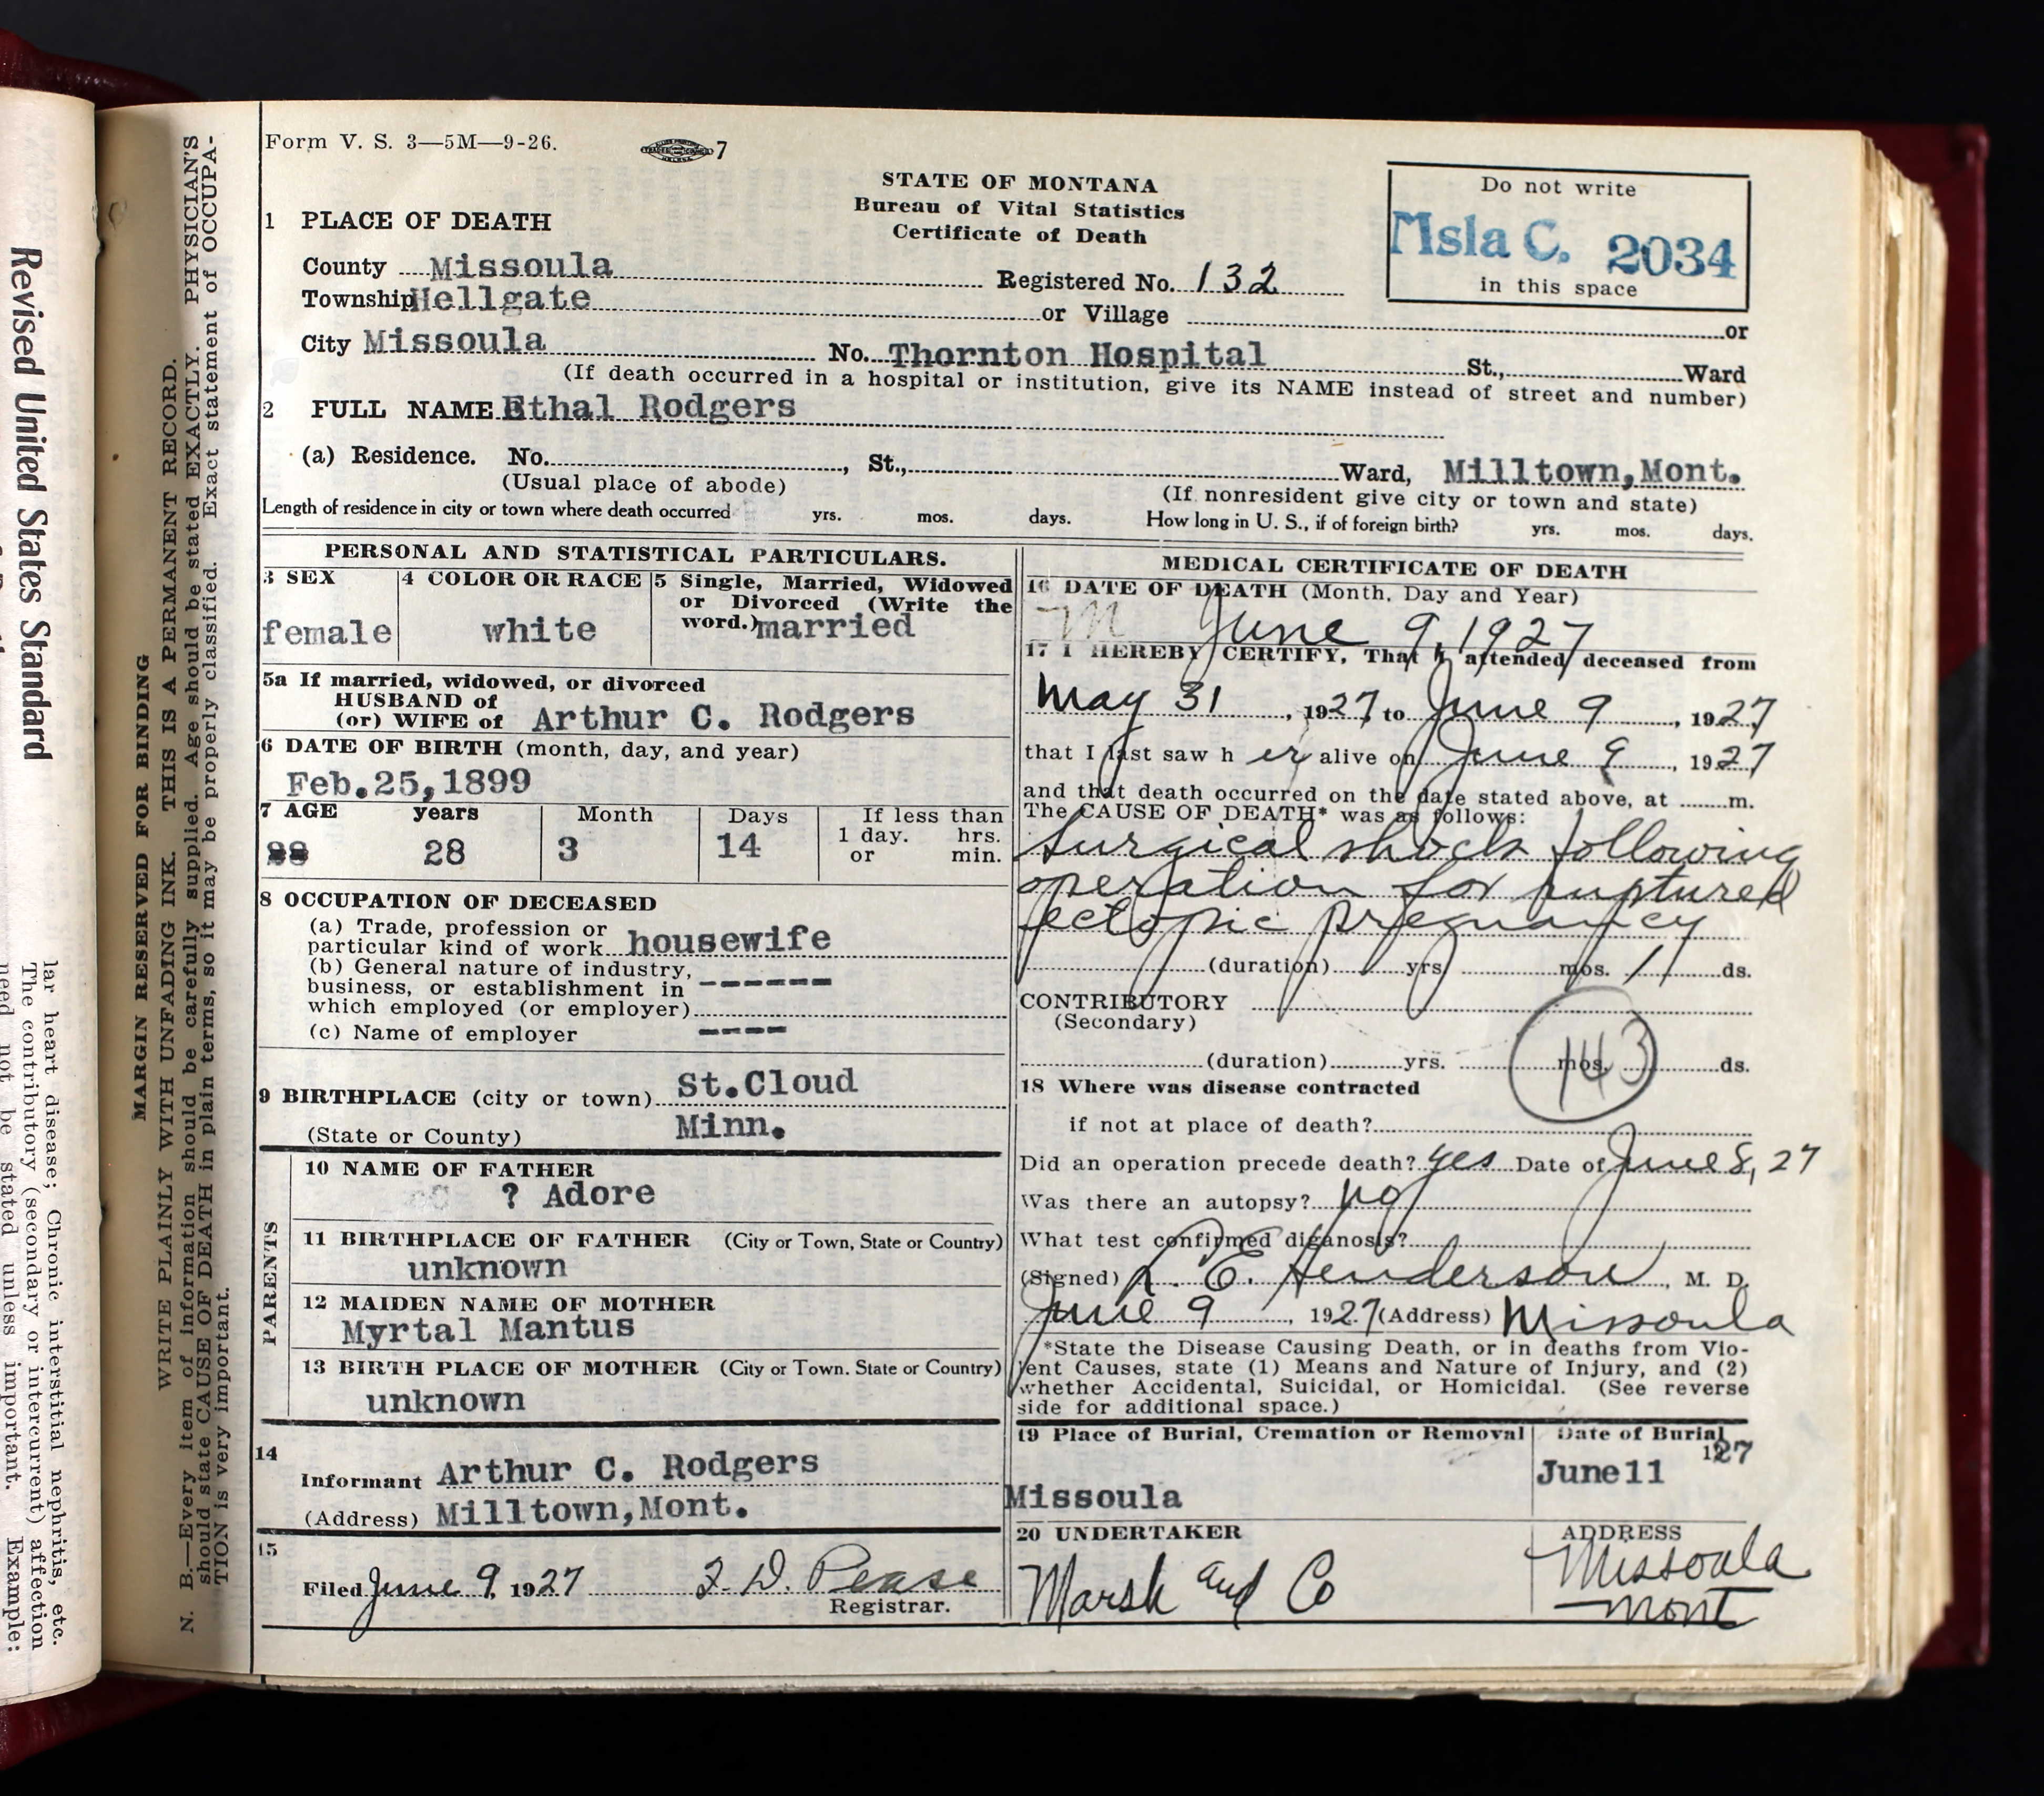 Revised United States Standard
lar heart disease; Chronic interstitial nephritis, etc.
The contributory (secondary or intercurrent) affection
need not be stated unless important. Example:
MARGIN RESERVED FOR BINDING
WRITE PLAINLY WITH UNFADING INK. THIS IS A PERMANENT RECORD.
N. B.—Every item of information should be carefully supplied. Age should be stated EXACTLY. PHYSICIAN'S
should state CAUSE OF DEATH in plain terms, so it may be properly classified. Exact statement of OCCUPA-
TION is very important.
Form V. S. 3—5M—9-26.
7
STATE OF MONTANA
Bureau of Vital Statistics
Certificate of Death
Do not write
Msla C. 2034
in this space
1 PLACE OF DEATH
County Missoula
Registered No. 132
Township Hellgate or Village or
City Missoula No. Thornton Hospital St., Ward
(If death occurred in a hospital or institution, give its NAME instead of street and number)
2 FULL NAME Ethal Rodgers
(a) Residence. No. , St., Ward, Milltown,Mont.
(Usual place of abode) (If nonresident give city or town and state)
Length of residence in city or town where death occurred yrs. mos. days. How long in U. S., if of foreign birth? yrs. mos. days.
PERSONAL AND STATISTICAL PARTICULARS.
3 SEX
female
4 COLOR OR RACE
white
5 Single, Married, Widowed
or Divorced (Write the
word.) married
5a If married, widowed, or divorced
HUSBAND of
(or) WIFE of Arthur C. Rodgers
6 DATE OF BIRTH (month, day, and year)
Feb.25,1899
7 AGE years Month Days If less than
1 day. hrs.
or min.
28 3 14
8 OCCUPATION OF DECEASED
(a) Trade, profession or
particular kind of work housewife
(b) General nature of industry,
business, or establishment in ------
which employed (or employer)
(c) Name of employer ----
9 BIRTHPLACE (city or town) St.Cloud
(State or County) Minn.
PARENTS
10 NAME OF FATHER
? Adore
11 BIRTHPLACE OF FATHER (City or Town, State or Country)
unknown
12 MAIDEN NAME OF MOTHER
Myrtal Mantus
13 BIRTH PLACE OF MOTHER (City or Town. State or Country)
unknown
14
Informant Arthur C. Rodgers
(Address) Milltown,Mont.
15
Filed June 9, 1927 F. D. Pease
Registrar.
MEDICAL CERTIFICATE OF DEATH
16 DATE OF DEATH (Month, Day and Year)
M June 9, 1927
17 I HEREBY CERTIFY, That I attended deceased from
May 31, 1927, to June 9, 1927
that I last saw h er alive on June 9, 1927
and that death occurred on the date stated above, at m.
The CAUSE OF DEATH* was as follows:
Surgical shock following
operation for ruptured
ectopic pregnancy
(duration) yrs. mos. 11 ds.
CONTRIBUTORY
(Secondary)
(duration) yrs. mos. ds.
143
18 Where was disease contracted
if not at place of death?
Did an operation precede death? yes Date of June 8, 27
Was there an autopsy? no
What test confirmed diganosis?
(Signed) E. Henderson, M. D.
June 9, 1927 (Address) Missoula
*State the Disease Causing Death, or in deaths from Vio-
lent Causes, state (1) Means and Nature of Injury, and (2)
whether Accidental, Suicidal, or Homicidal. (See reverse
side for additional space.)
19 Place of Burial, Cremation or Removal
Missoula
Date of Burial
1927
June11
20 UNDERTAKER
Marsh and Co
ADDRESS
Missoula
Mont